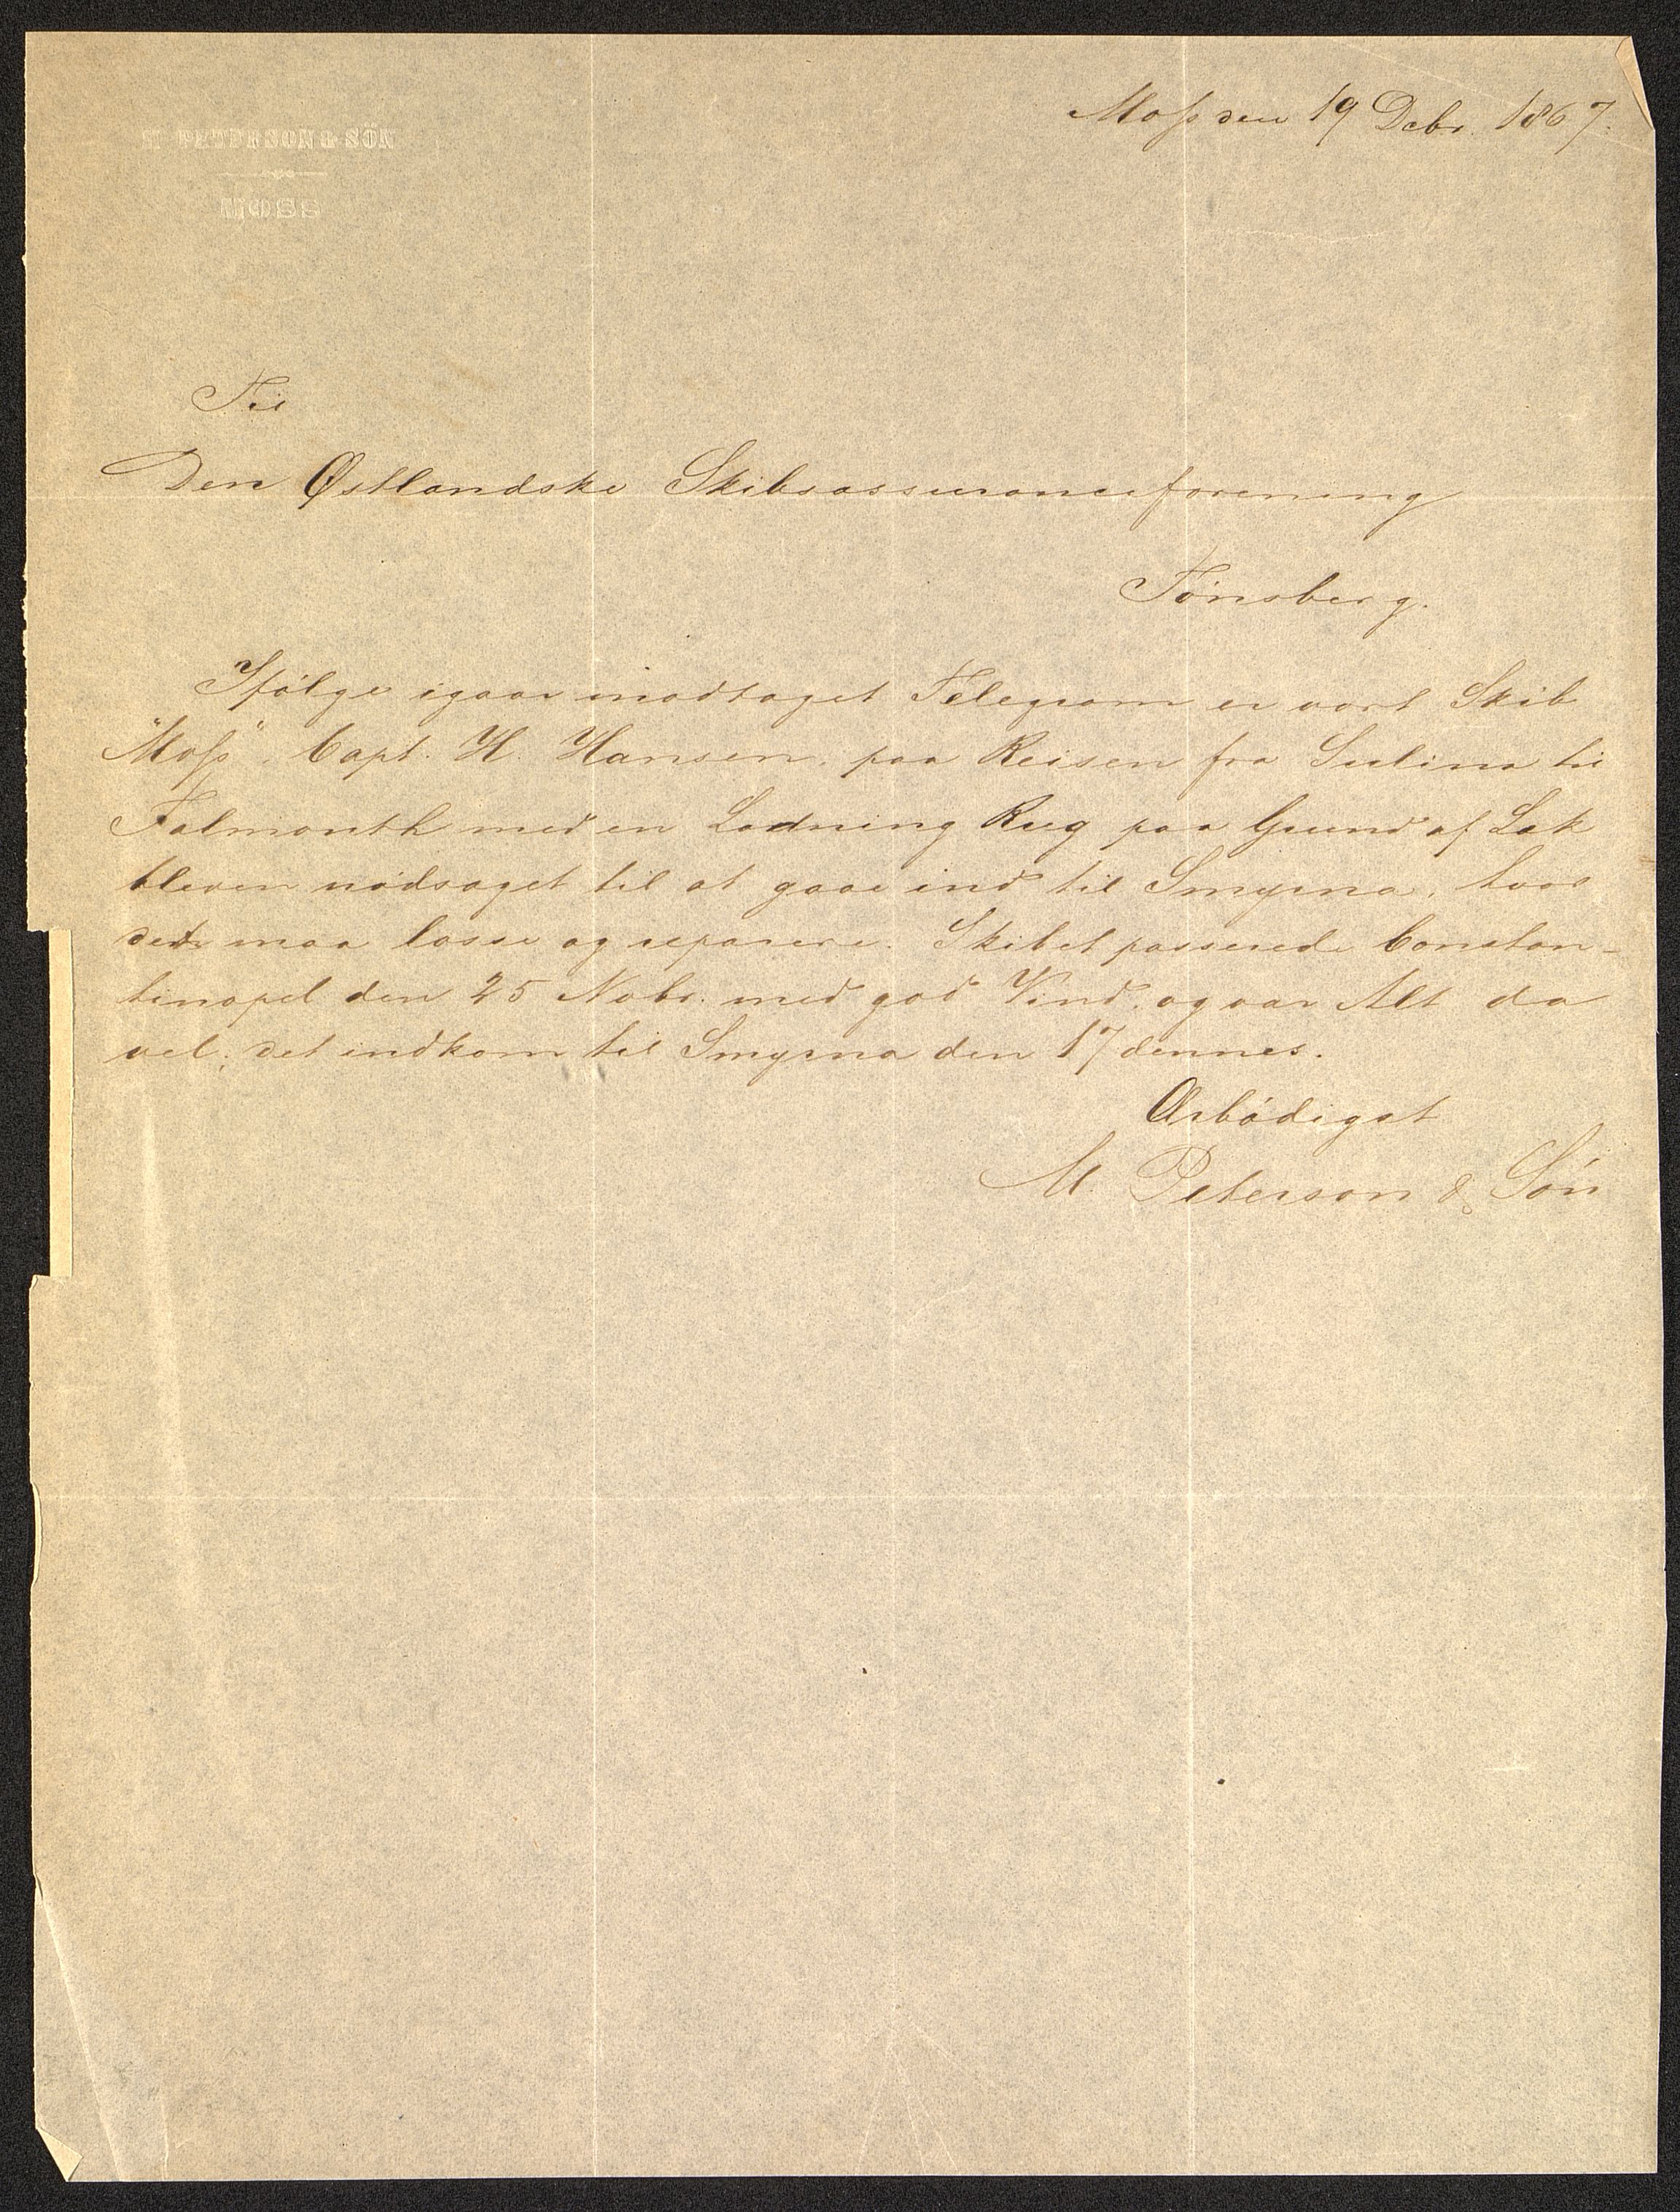 M PETERSON & SÖN
MOSS
Moss den 19 Debr. 1867.
Til
Den Østlandske Skibsassuranceforening
Tönsberg.
Ifölge igaar modtaget Telegram er vort Skib
"Moss", Capt. H. Hansen, paa Reisen fra Sulina til
Falmouth med en Ladning Rug paa Grund af Læk
bleven nödsaget til at gaae ind til Smyrna, hvor
det maa losse og reparere. Skibet passerede Constan-
tinopel den 25 Nobr. med god Vind, og var Alt da
vel; det indkom til Smyrna den 17 dennes.
Ærbödigst
M. Peterson & Sön